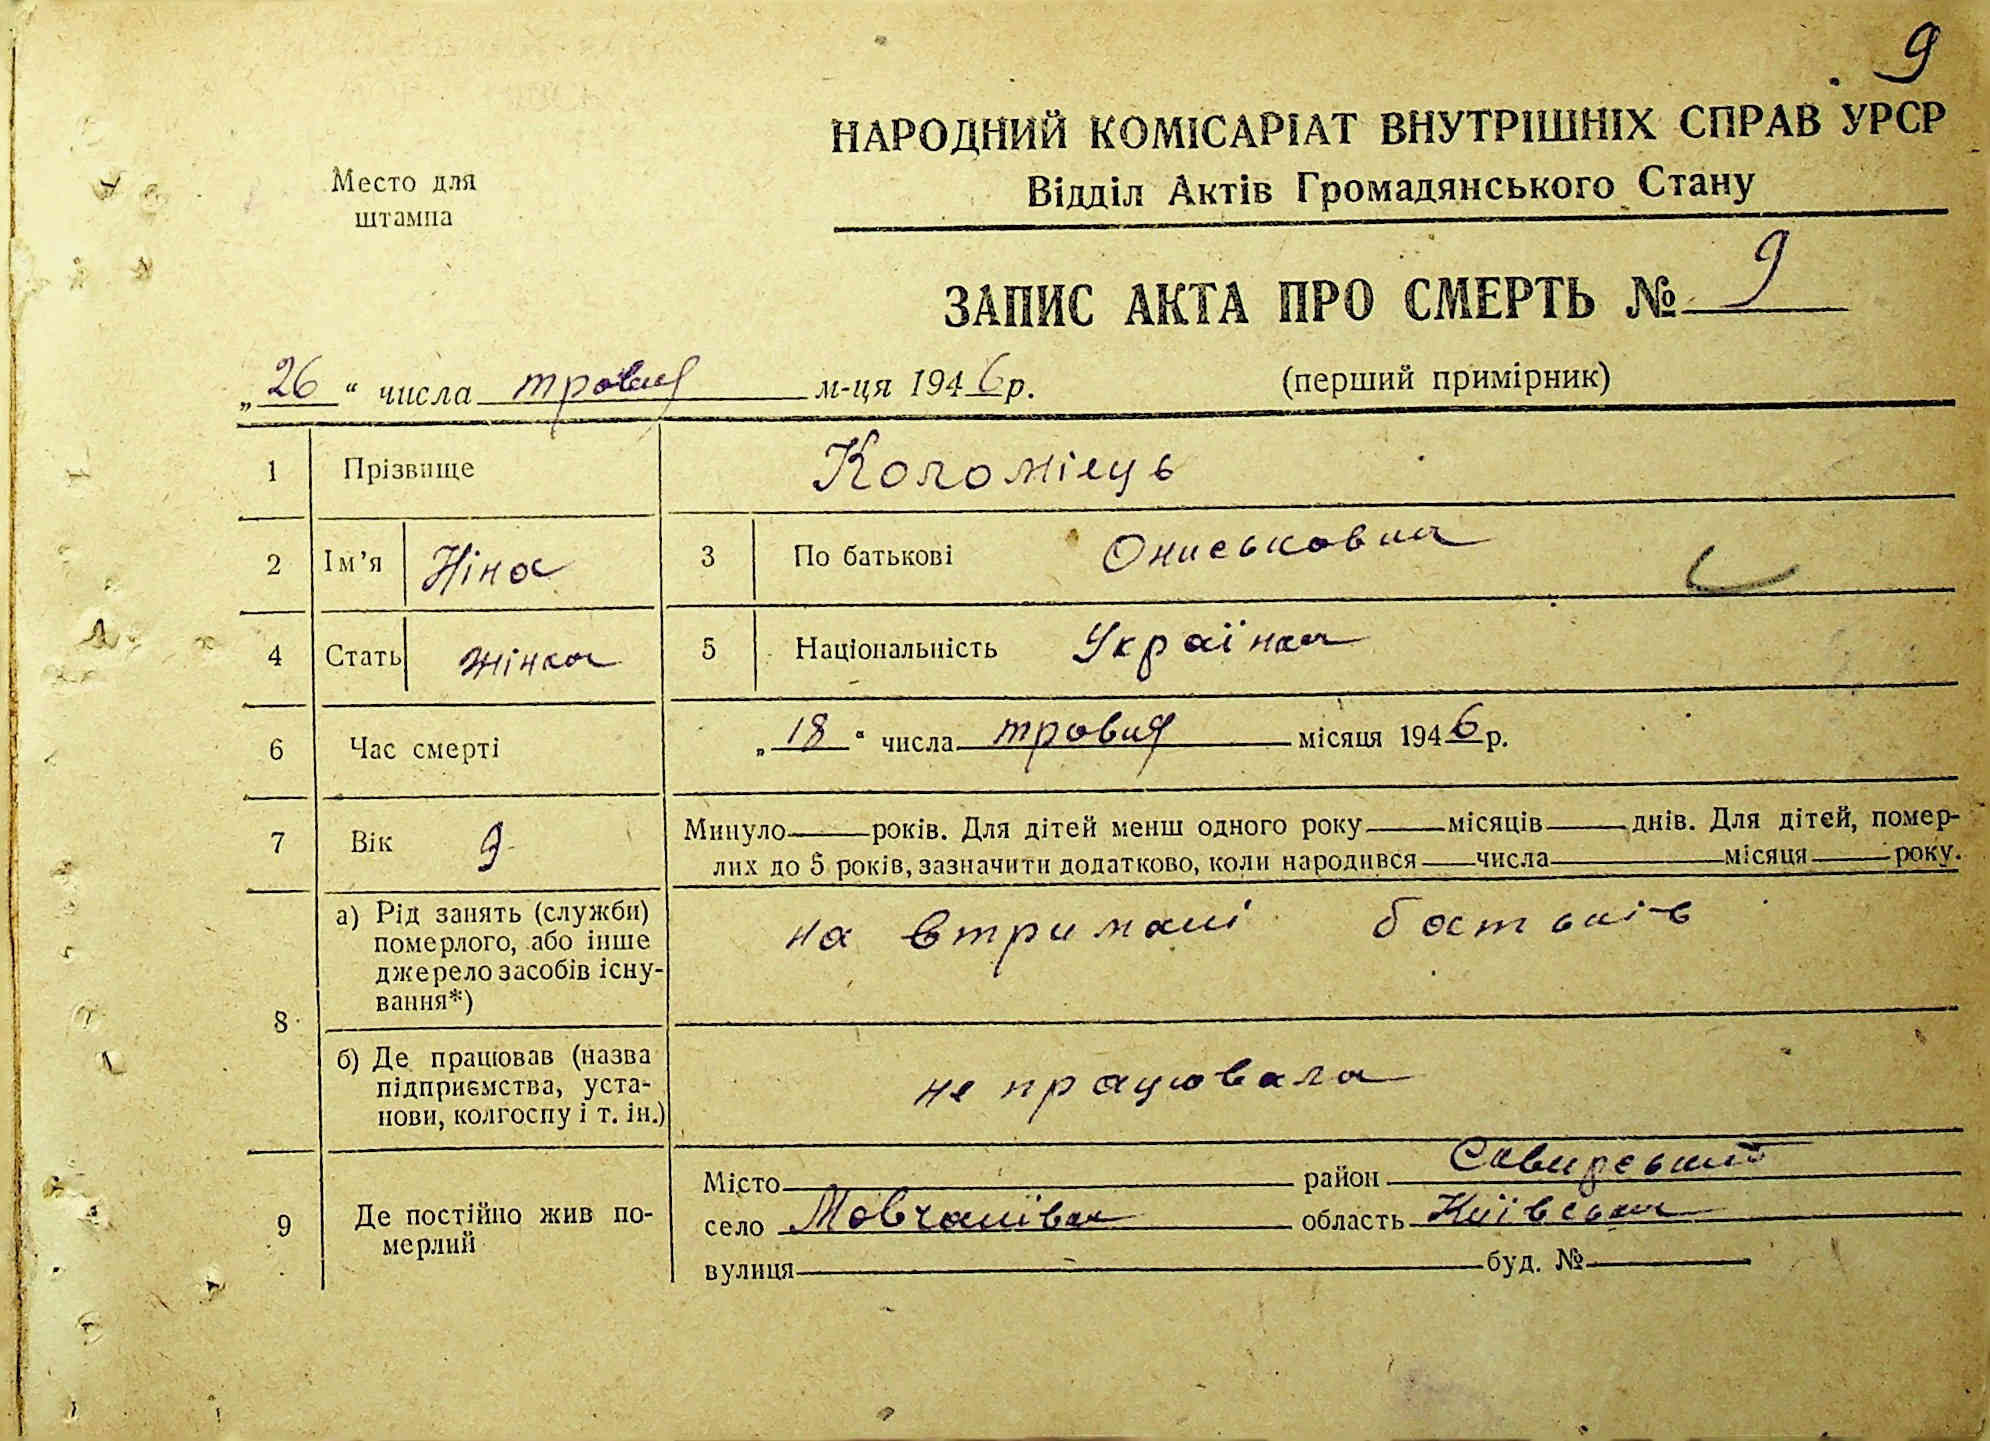 9
НАРОДНИЙ КОМІСАРІАТ ВНУТРІШНІХ СПРАВ УРСР
Відділ Актів Громадянського Стану
Место для
штампа
ЗАПИС АКТА ПРО СМЕРТЬ № 9
„26“ числа травня м-ця 1946 р.
(перший примірник)
1 Прізвище Коломієць
2 Ім'я Ніна 3 По батькові Ониськовна
4 Стать жінка 5 Національність Українка
6 Час смерті „18“ числа травня місяця 1946 р.
7 Вік 9 Минуло ___ років. Для дітей менш одного року ___ місяців ___ днів. Для дітей, помер-
лих до 5 років, зазначити додатково, коли народився ___ числа ___ місяця ___ року.
8 а) Рід занять (служби)
померлого, або інше
джерело засобів існу-
вання*)
на втримані батьків
б) Де працював (назва
підприємства, уста-
нови, колгоспу і т. ін.)
не працювала
9 Де постійно жив по-
мерлий
Місто ___ район Сквирський
село Мовчанівка область Київська
вулиця ___ буд. № ___